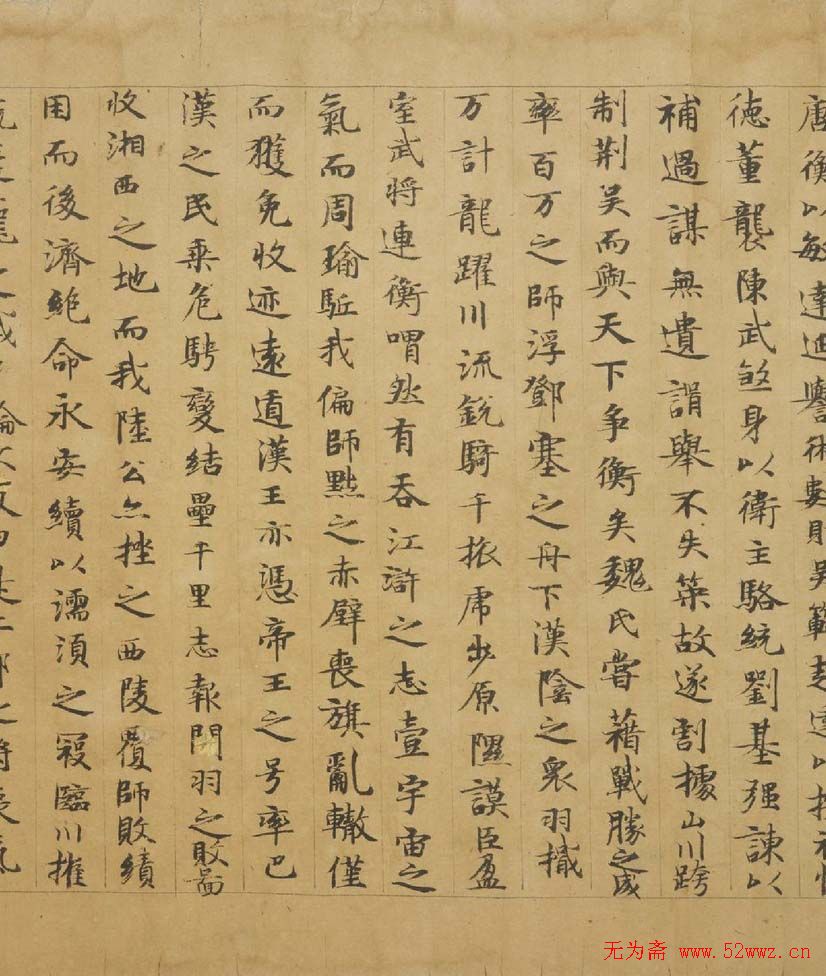 唐衡以敏達延譽術數則吴範趙達以
徳董襲陳武煞身以衛主駱統劉基强諫以
補過謀無遺諝舉不失筞故遂割據山川跨
制荆吴而與天下争衡矣魏氏嘗藉戰勝之威
率百万之師浮鄧塞之舟下漢陰之衆羽檝
万計龍躍川流銳騎千旅虎步原隰謨臣盈
室武将連衡喟然有吞江滸之志壹宇宙之
氣而周瑜駈我偏師黜之赤壁喪旗亂轍僅
而獲免收迹遠遁漢王亦憑帝王之号率巴
漢之民乗危騁變結壘千里志報関羽之敗啚
收湘西之地而我陸公亦挫之西陵覆師敗績
困而後濟絶命永安續以濡湏之寇臨川摧
之戰 輪不反由是二邦之将喪氣
无为斋 www.52wwz.cn